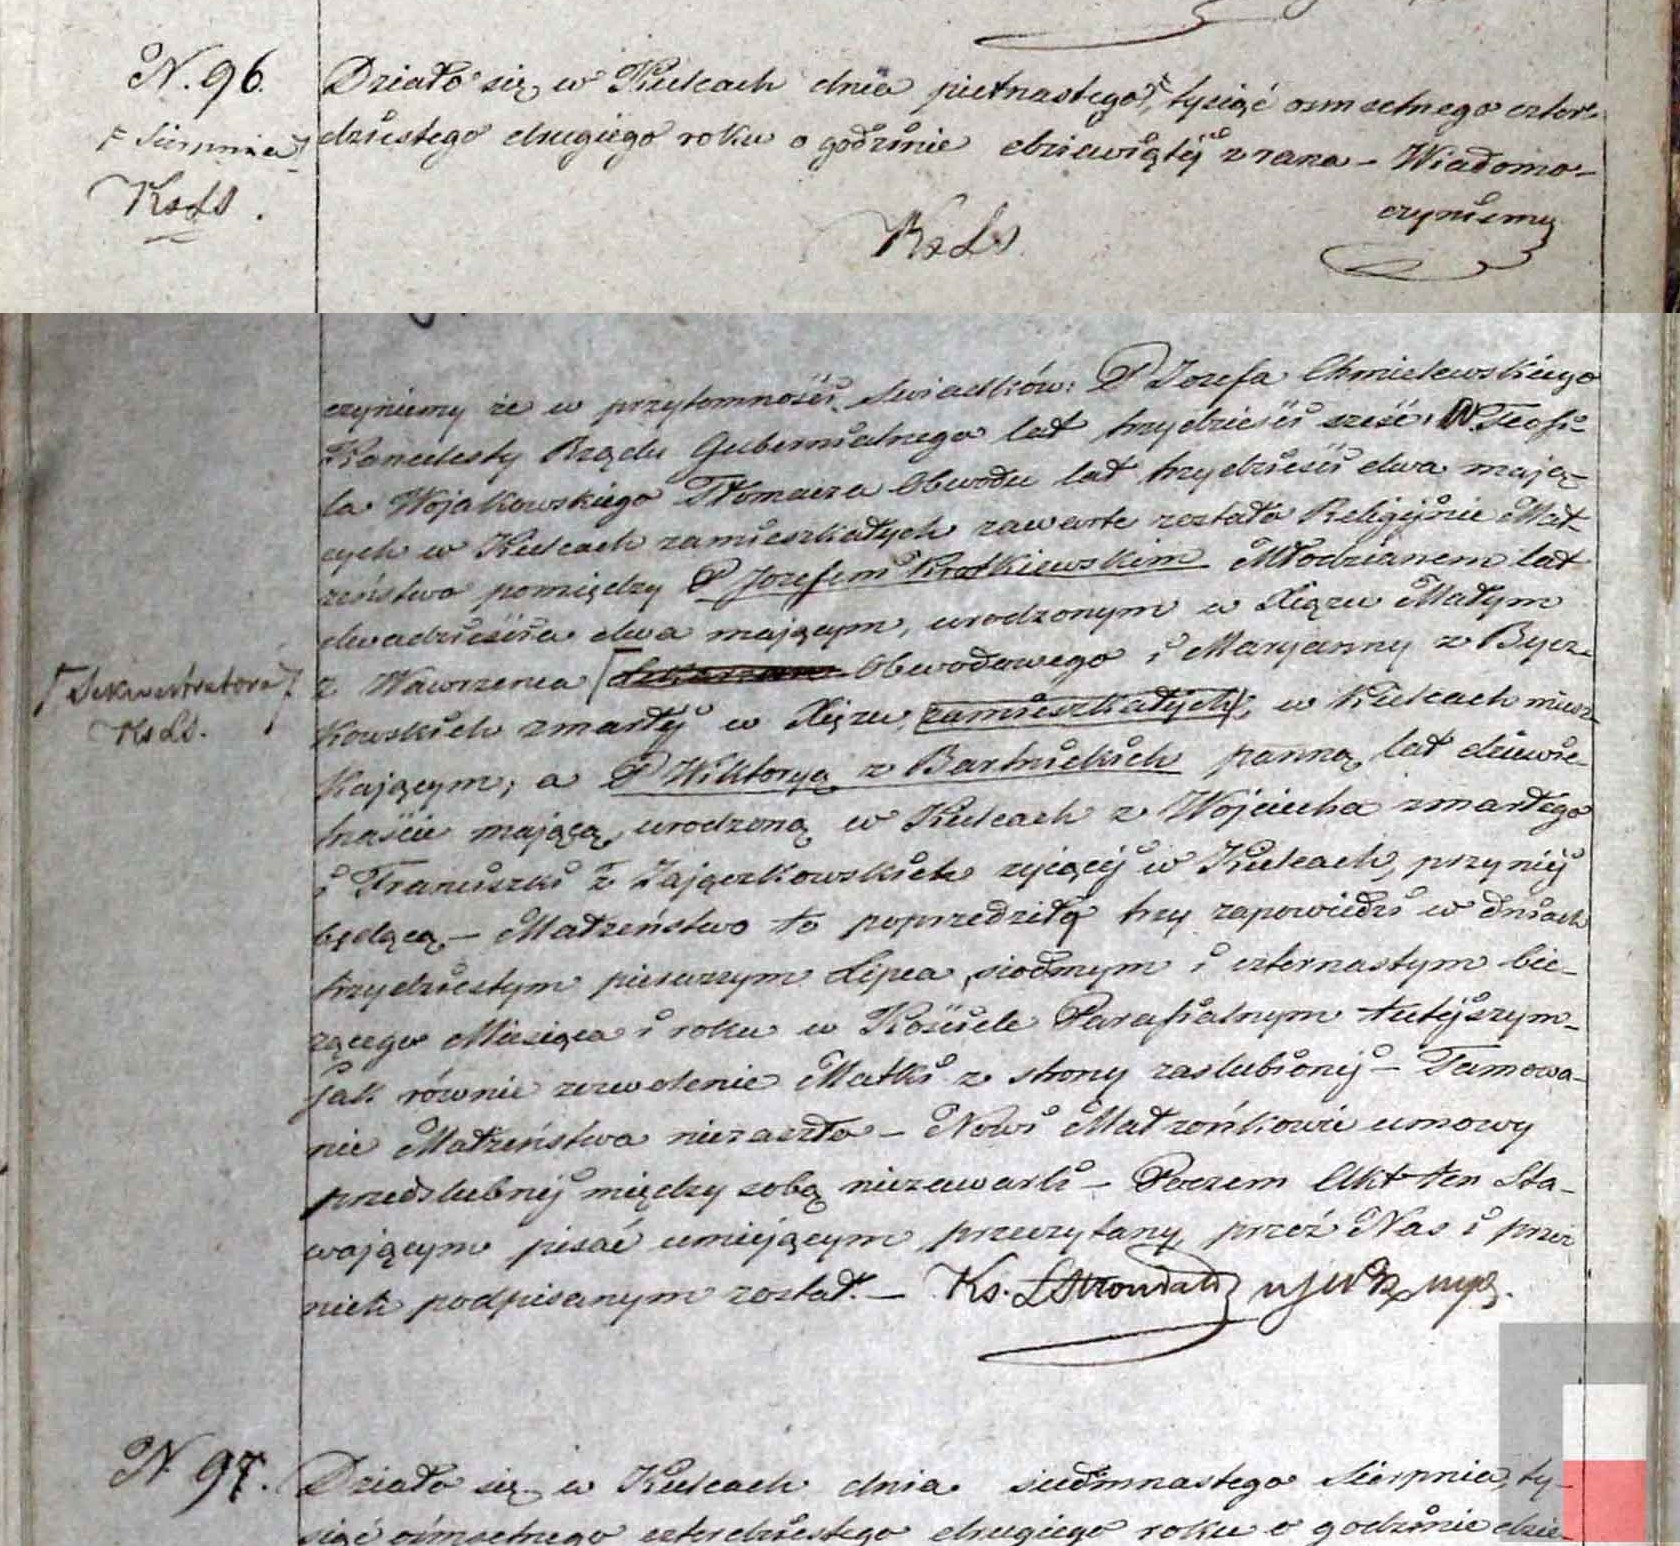 N. 96.
Działo się w Kielcach dnia pietnastego, tysiąć osmsetnego czter-
Sierpnia
dziestego drugiego roku o godzinie dziewiątéj z rana – Wiadomo-
KsLS.
czyniemy
KsLS
czyniemy że w przytomności Swiadków: P Jozefa Chmielewskiego
Kancelisty Rządu Gubernialnego lat trzydzieści sześć i W. Teofi-
la Wojakowskiego Tłomacza Obwodu lat trzydzieści dwa mają-
cych w Kielcach zamieszkałych zawarte zostało Religijnie Mał-
zeństwo pomiędzy P Jozefem Krotkiewskim Młodzianem lat
dwadzieścia dwa mającym, urodzonym w Xiązu Małym
z Wawrzenca Obwodowego i Maryanny z Bycz-
Sekwestratora
KsLS.
kowskich zmarłéj w Xiązu, zamieszkałych, w Kielcach miesz-
kającym; a P Wiktoryą z Bartnickich panną lat dziewie-
tnaście mającą, urodzoną w Kielcach z Wojciecha zmarłego
i Franciszki z Zajączkowskich zyiącéj w Kielcach, przy niéj
będącą. – Małzeństwo to poprzedziłý trzy zapowiedzi w dniach
trzydziestym pierwszym Lipca, siodmym i czternastym bie-
zącego Miesiąca i roku w Kościele Parafialnym tutéjszym –
jak równie zezwolenie Matki z strony zaslubionéj – Tamowa-
nie Małzeństwa niezaszło – Nowi Małzońkowie umowy
przedslubnéj między sobą niezawarli – Poczem Akt ten Sta-
wającym pisać umiejącym przeczytany, przez Nas i przez
nich podpisanym został. –
N 97.
Działo się w Kielcach dnia siedmnastego Sierpnia, ty-
siąć ośmsetnego czterdziestego drugiego roku o godzinie dzie-